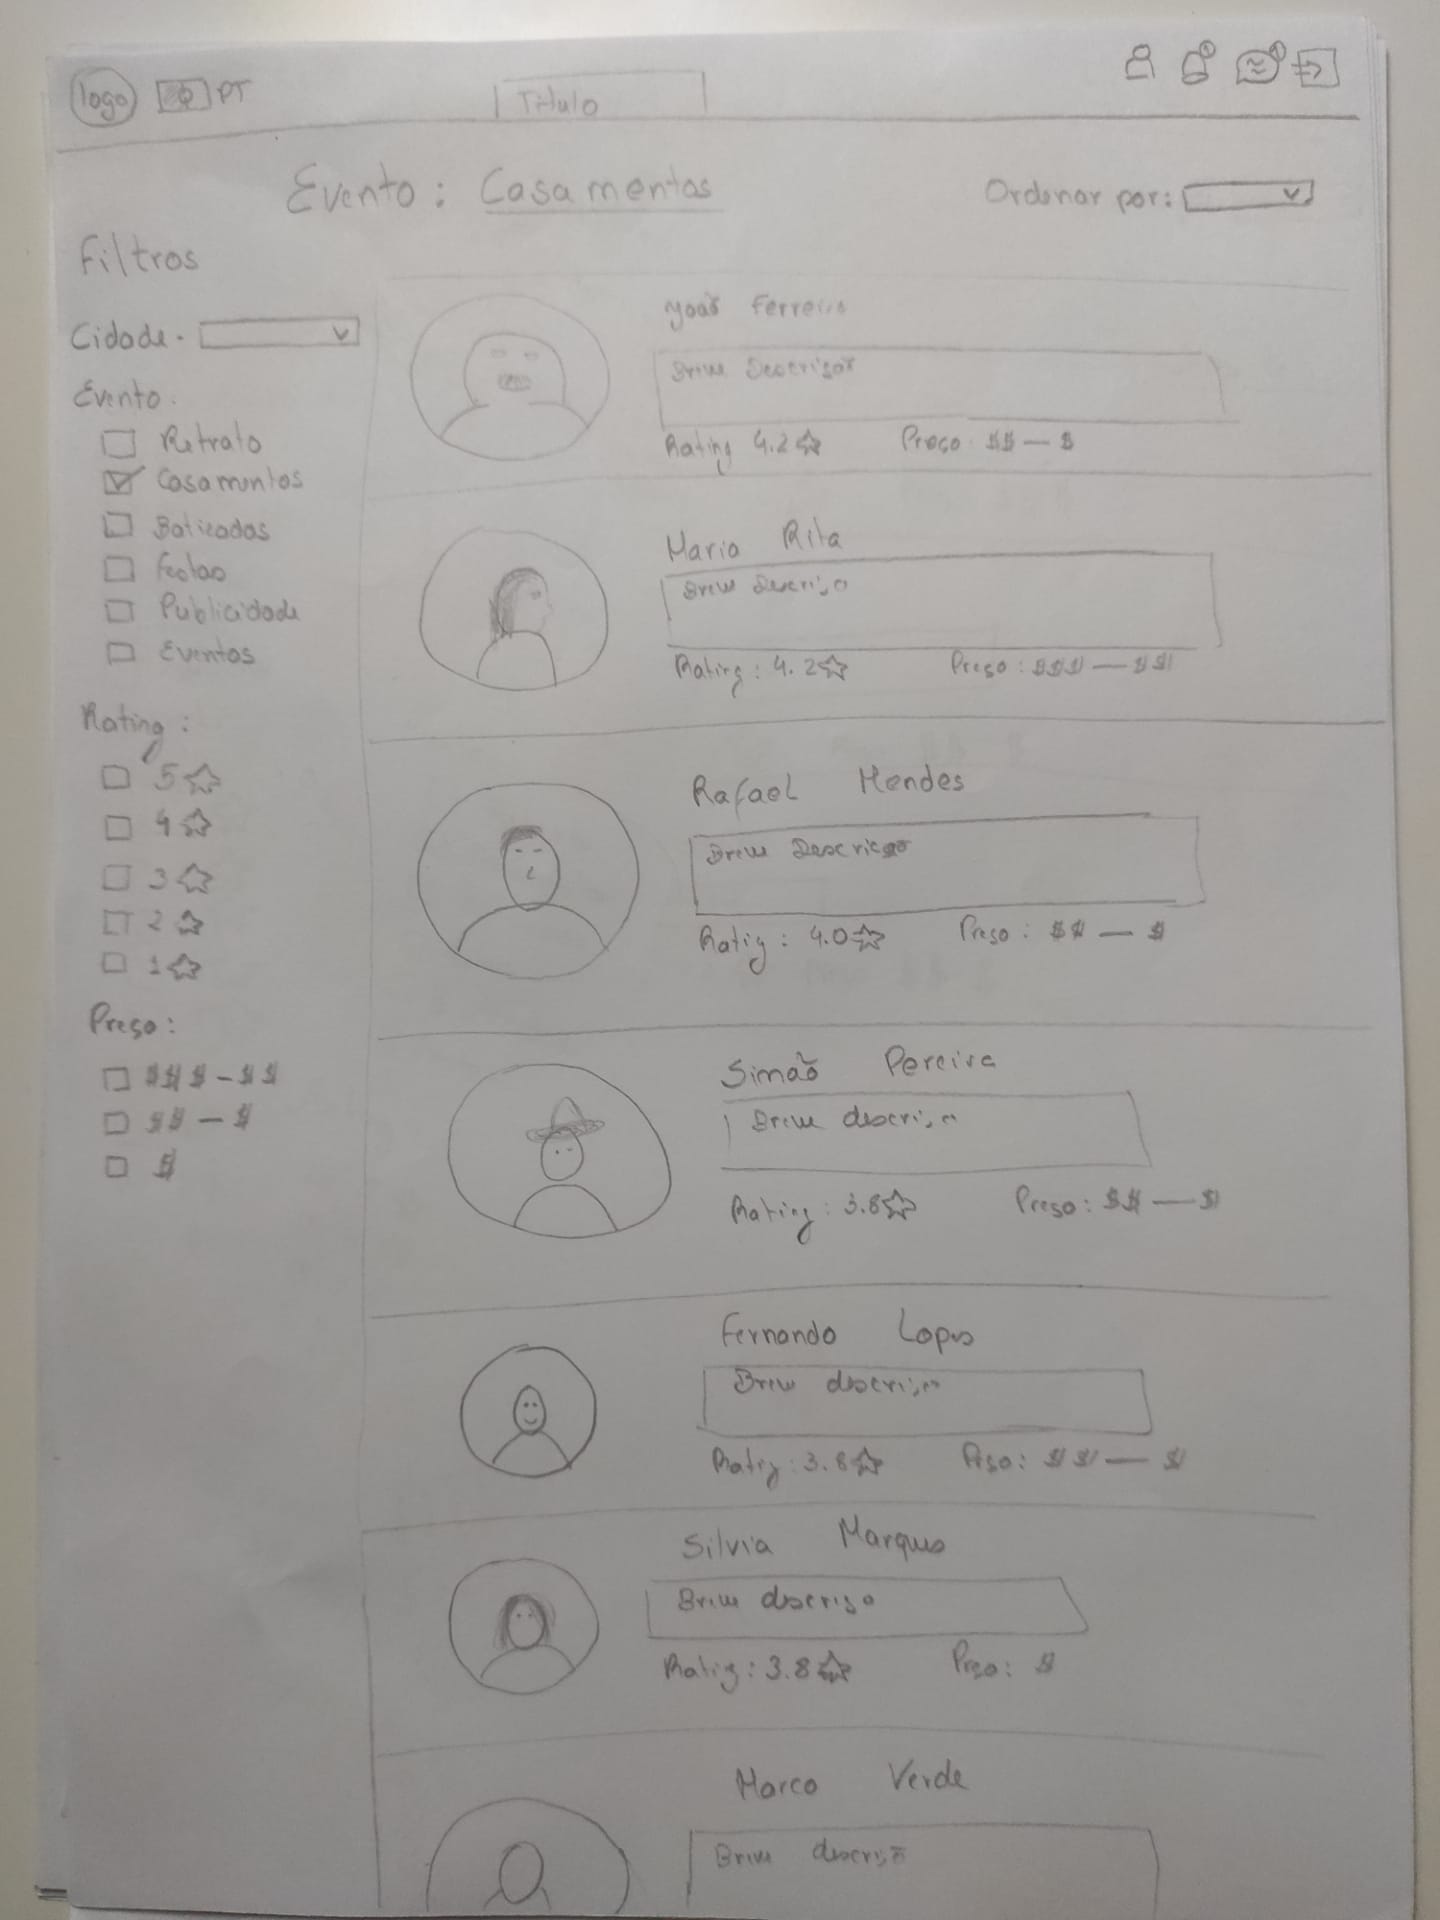 logo PT Titulo
Evento: Casamentos
Ordenar por:
Filtros
Cidade.
Evento.
Retrato
Casamentos
Batizados
Festas
Publicidade
Eventos
Rating:
5☆
4☆
3☆
2☆
1☆
Preço:
$$$-$$
$$-$
$
João Ferreira
Breve Descrição
Rating 4.2☆ Preço: $$-$
Maria Rita
Breve Descrição
Rating: 4.2☆ Preço: $$$-$$
Rafael Mendes
Breve Descrição
Ratig: 4.0☆ Preço: $$-$
Simão Pereira
Breve descrição
Rating: 3.8☆ Preço: $$-$
Fernando Lopes
Breve descrição
Ratig: 3.8☆ Preço: $$-$
Silvia Marques
Breve descrição
Ratig: 3.8☆ Preço: $
Marco Verde
Breve descrição